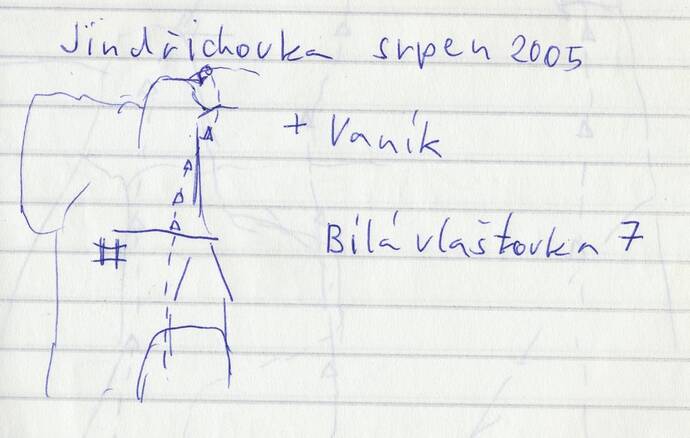 Jindřichovka srpen 2005
+ Vaník
Bílá vlaštovka 7